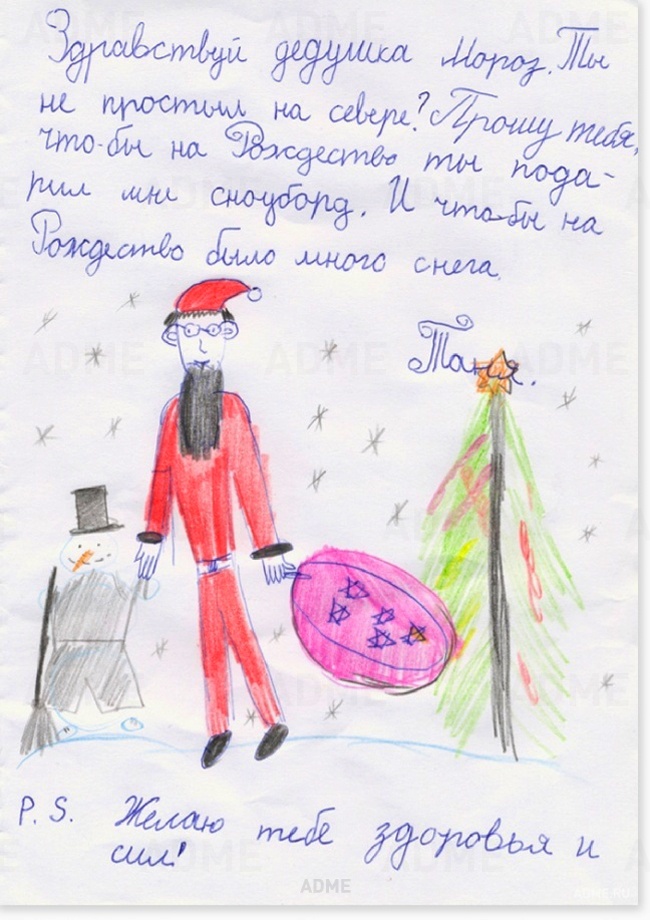 Здравствуй дедушка Мороз. Ты
не простыл на севере? Прошу тебя,
что-бы на Рождество ты пода-
рил мне сноуборд. И что-бы на
Рождество было много снега.
Таня.
P. S. Желаю тебе здоровья и
сил!
ADME
ADME.RU